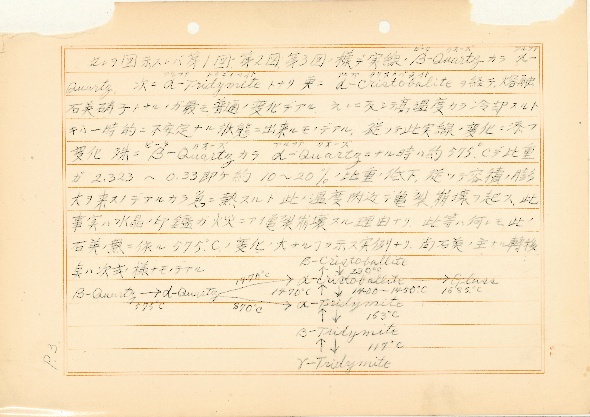 第1回 第2回 第3回 様ナ実線 β-Quartz カラ α-
Quartz 次ニ α-Tridymite トナリ更ニ α-Cristobalite ヲ経テ熔融
石英硝子トナルノガ最モ普通ノ変化デアル 高温度カラ冷却スルト
一時的ニ不安定ナル状態ニ出来ルモノデアル 従ッテ此実線ノ変化ニ
変化殊ニ β-Quartz カラ α-Quartz ニナル時ハ約575℃デ比重
ガ2.323 〜 0.33即チ約10〜20%ノ比重ノ低下従ッテ容積ノ膨
大ヲ来スノデアルカラ急ニ熱スルト此ノ温度附近デ亀裂崩壊ヲ起ス此
事実ハ水晶ノ印鑑ガ火災ニアイ亀裂崩壊スル理由ナリ 此等ハ何レモ此ノ
石英ノ熱ニ係ル575℃ノ変化ノ大ナルコトヲ示ス実例ナリ 尚石英ノ主ナル転移
点ハ次ノ様ナモノデアル
β-Cristobalite
230℃
1470℃ α-Cristobalite → Glass
β-Quartz → α-Quartz 1470℃ 1400-1450℃ 1685℃
575℃ 870℃ → α-Tridymite
163℃
β-Tridymite
117℃
γ-Tridymite
P.3.